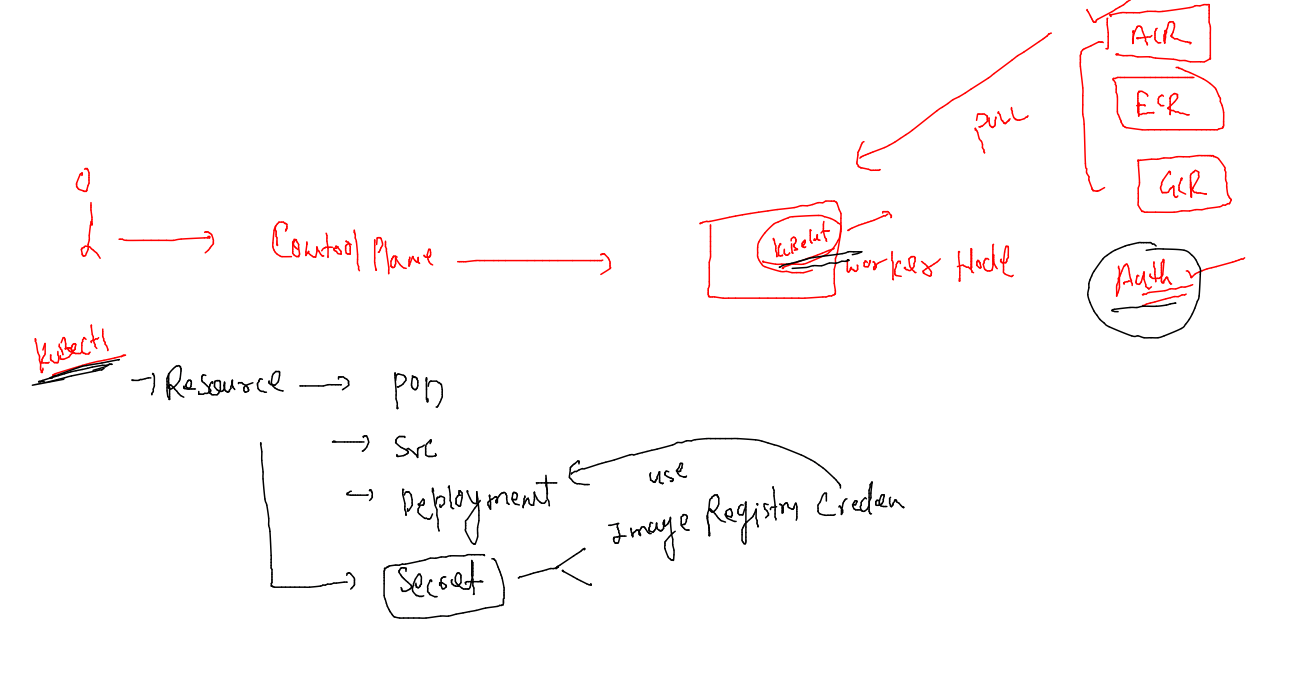 ACR
ECR
PULL
GCR
Control Plane
Kubelet
Worker Node
Auth
Kubectl
Resource
POD
SVC
Deployment
use
Image Registry Creden
Secret